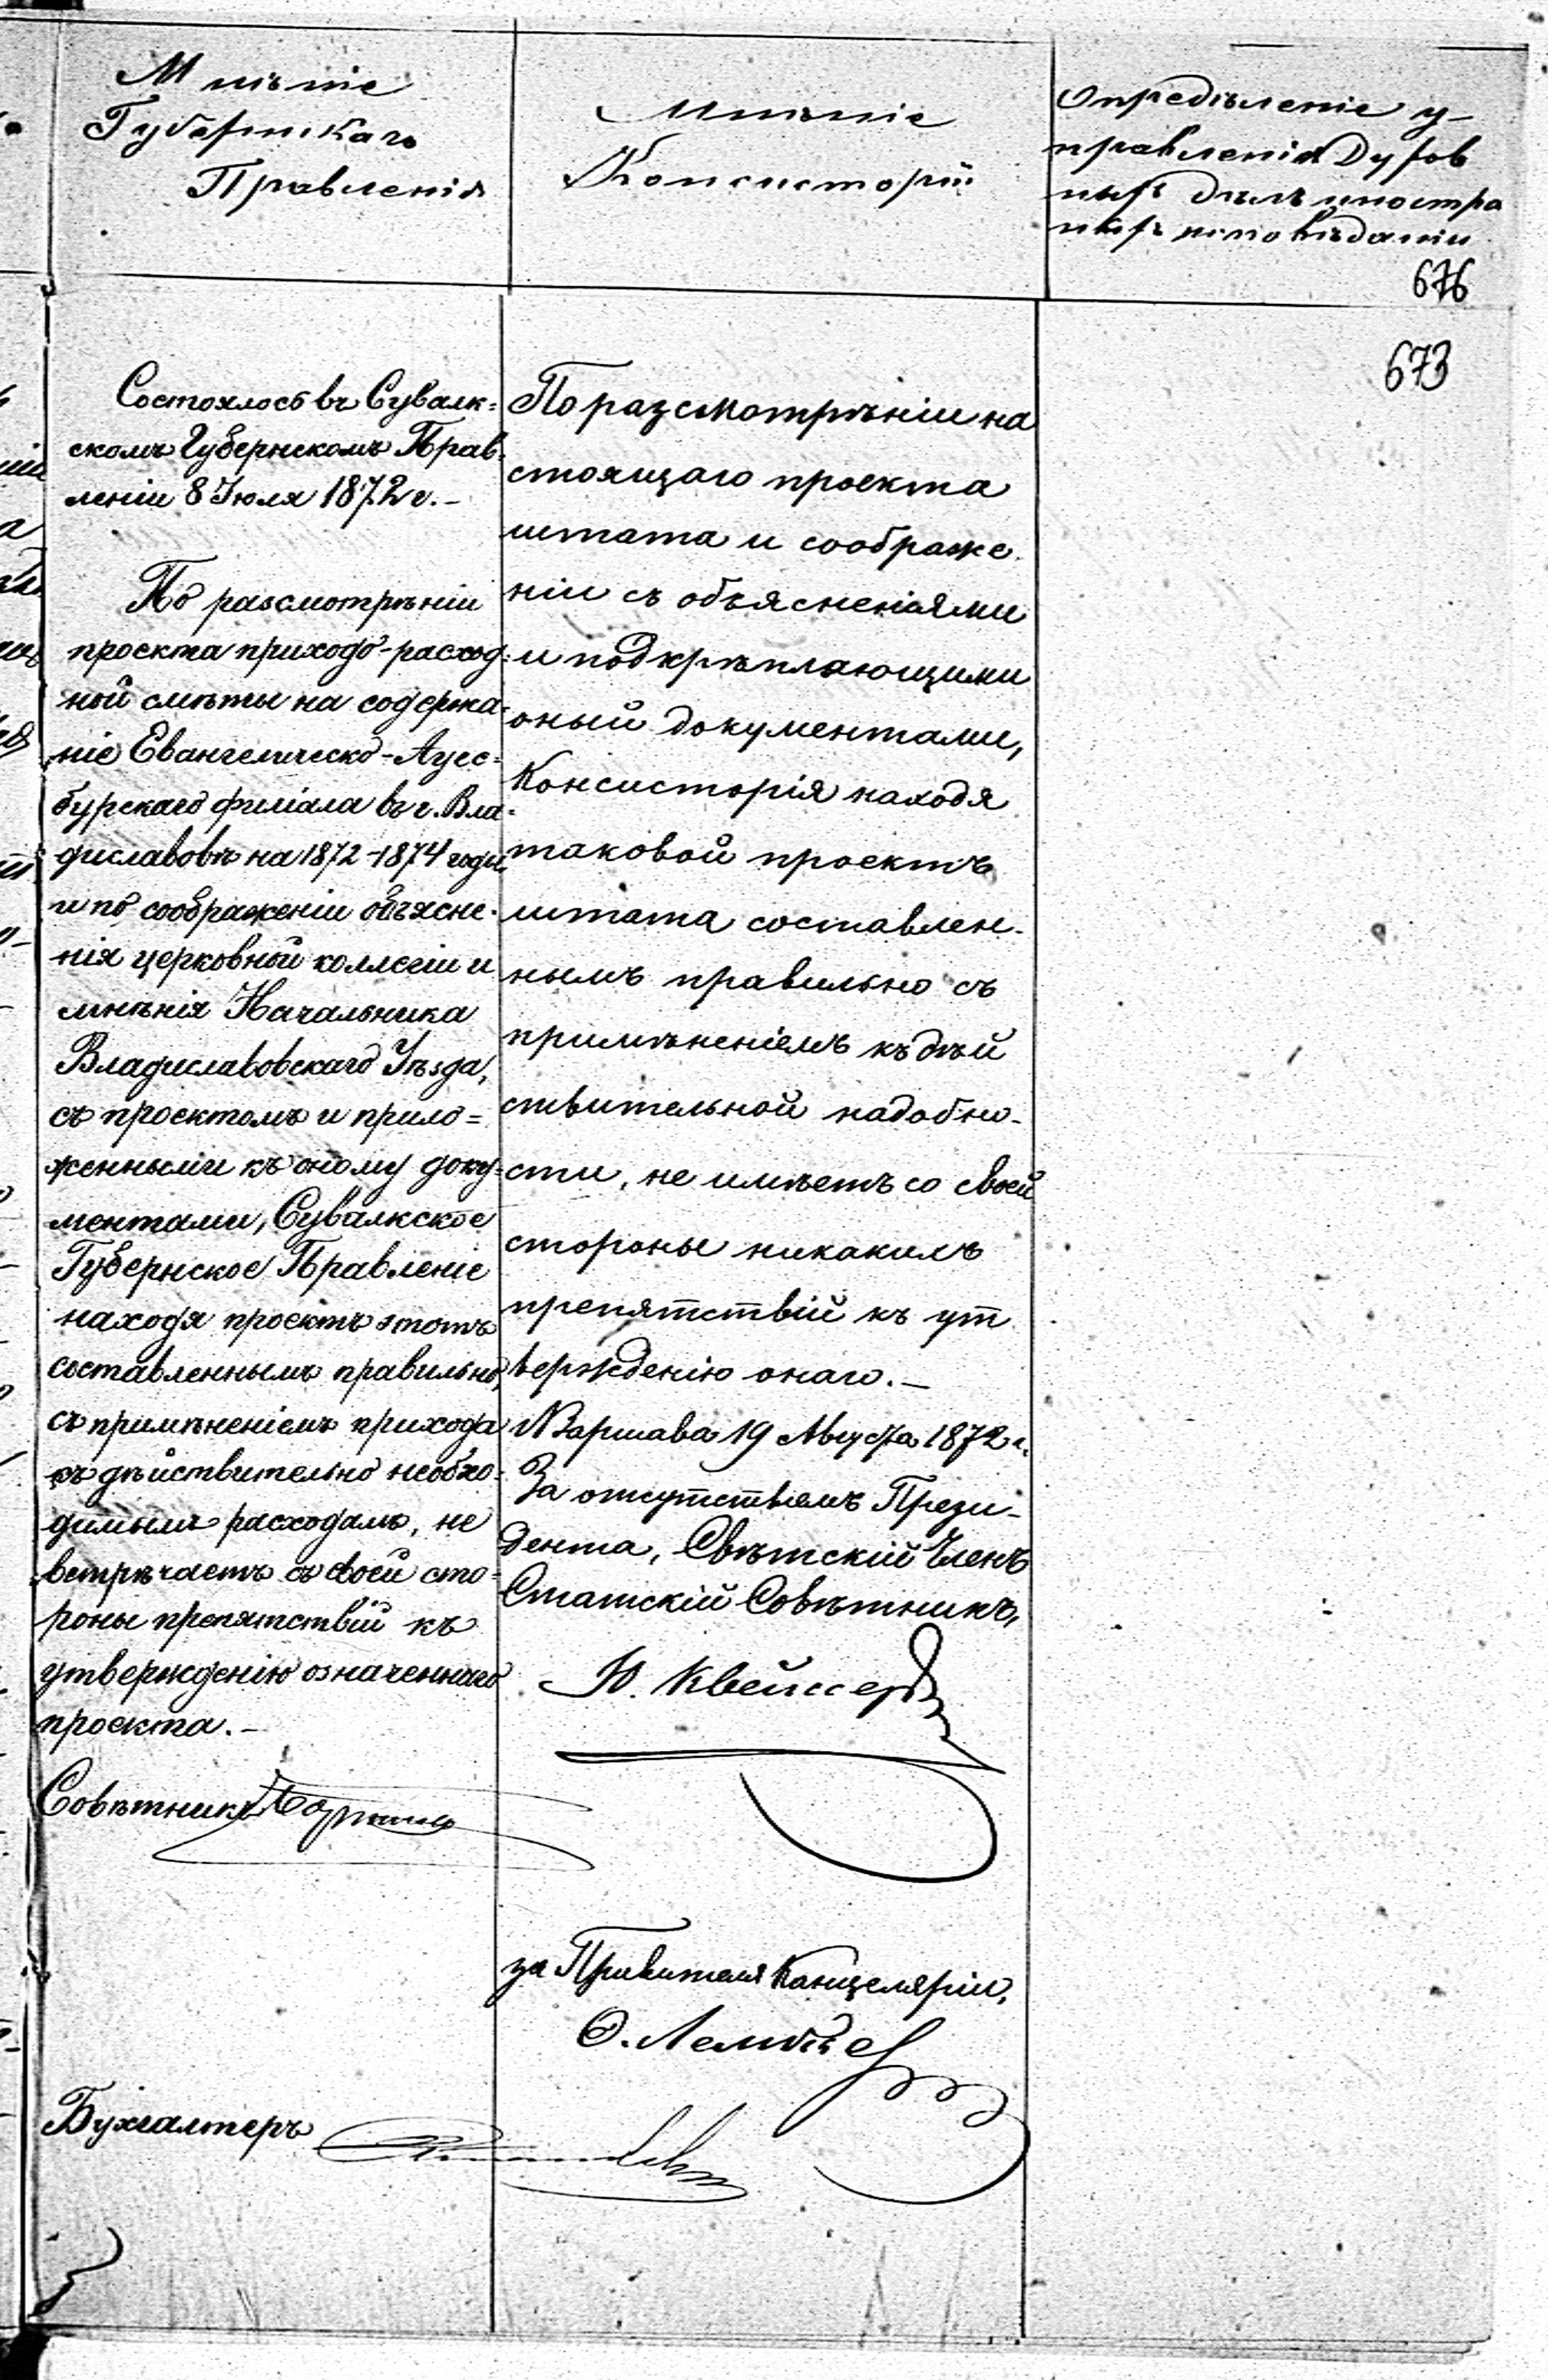 Мнѣніе
Губернскаго
Правленія
Состоялось въ Сувалк=
скомъ Губернскомъ Прав=
леніи 8 Іюля 1872 г. –
По разсмотрѣніи
проекта приходо-расход=
ной смѣты на содержа=
ніе Евангелическо-Аугс=
бургскаго филіала въ г. Вла=
диславовѣ на 1872-1874 годы
и по соображеніи объясне=
нія церковной коллегіи и
мнѣнія Начальника
Владиславовскаго Уѣзда,
съ проектомъ и прило=
женными къ оному доку=
ментами, Сувалкское
Губернское Правленіе
находя проектъ этотъ
составленнымъ правильно,
съ примѣненіемъ прихода
къ дѣйствительно необхо=
димымъ расходамъ, не
встрѣчаетъ съ своей сто=
роны препятствій къ
утвержденію означеннаго
проекта. –
Совѣтникъ
Бухгалтеръ
Мнѣніе
Консисторіи
По разсмотрѣніи на
стоящаго проекта
штата и соображе
ніи съ объясненіями
и подкрѣпляющими
оный документами,
Консисторія находя
таковой проектъ
штата составлен-
нымъ правильно съ
примѣненіемъ къ дѣй
ствительной надобно-
сти, не имѣетъ со своей
стороны никакихъ
препятствій къ ут
вержденію онаго. –
Варшава 19 Августа 1872 г.
За отсутствіемъ Прези-
дента, Свѣтскій Членъ
Статскій Совѣтникъ,
Ю. Квейссеръ
за Правителя Канцеляріи,
О.
Опредѣленіе у-
правленія Духов
ныхъ дѣлъ иностра
ныхъ исповѣданій
676
673